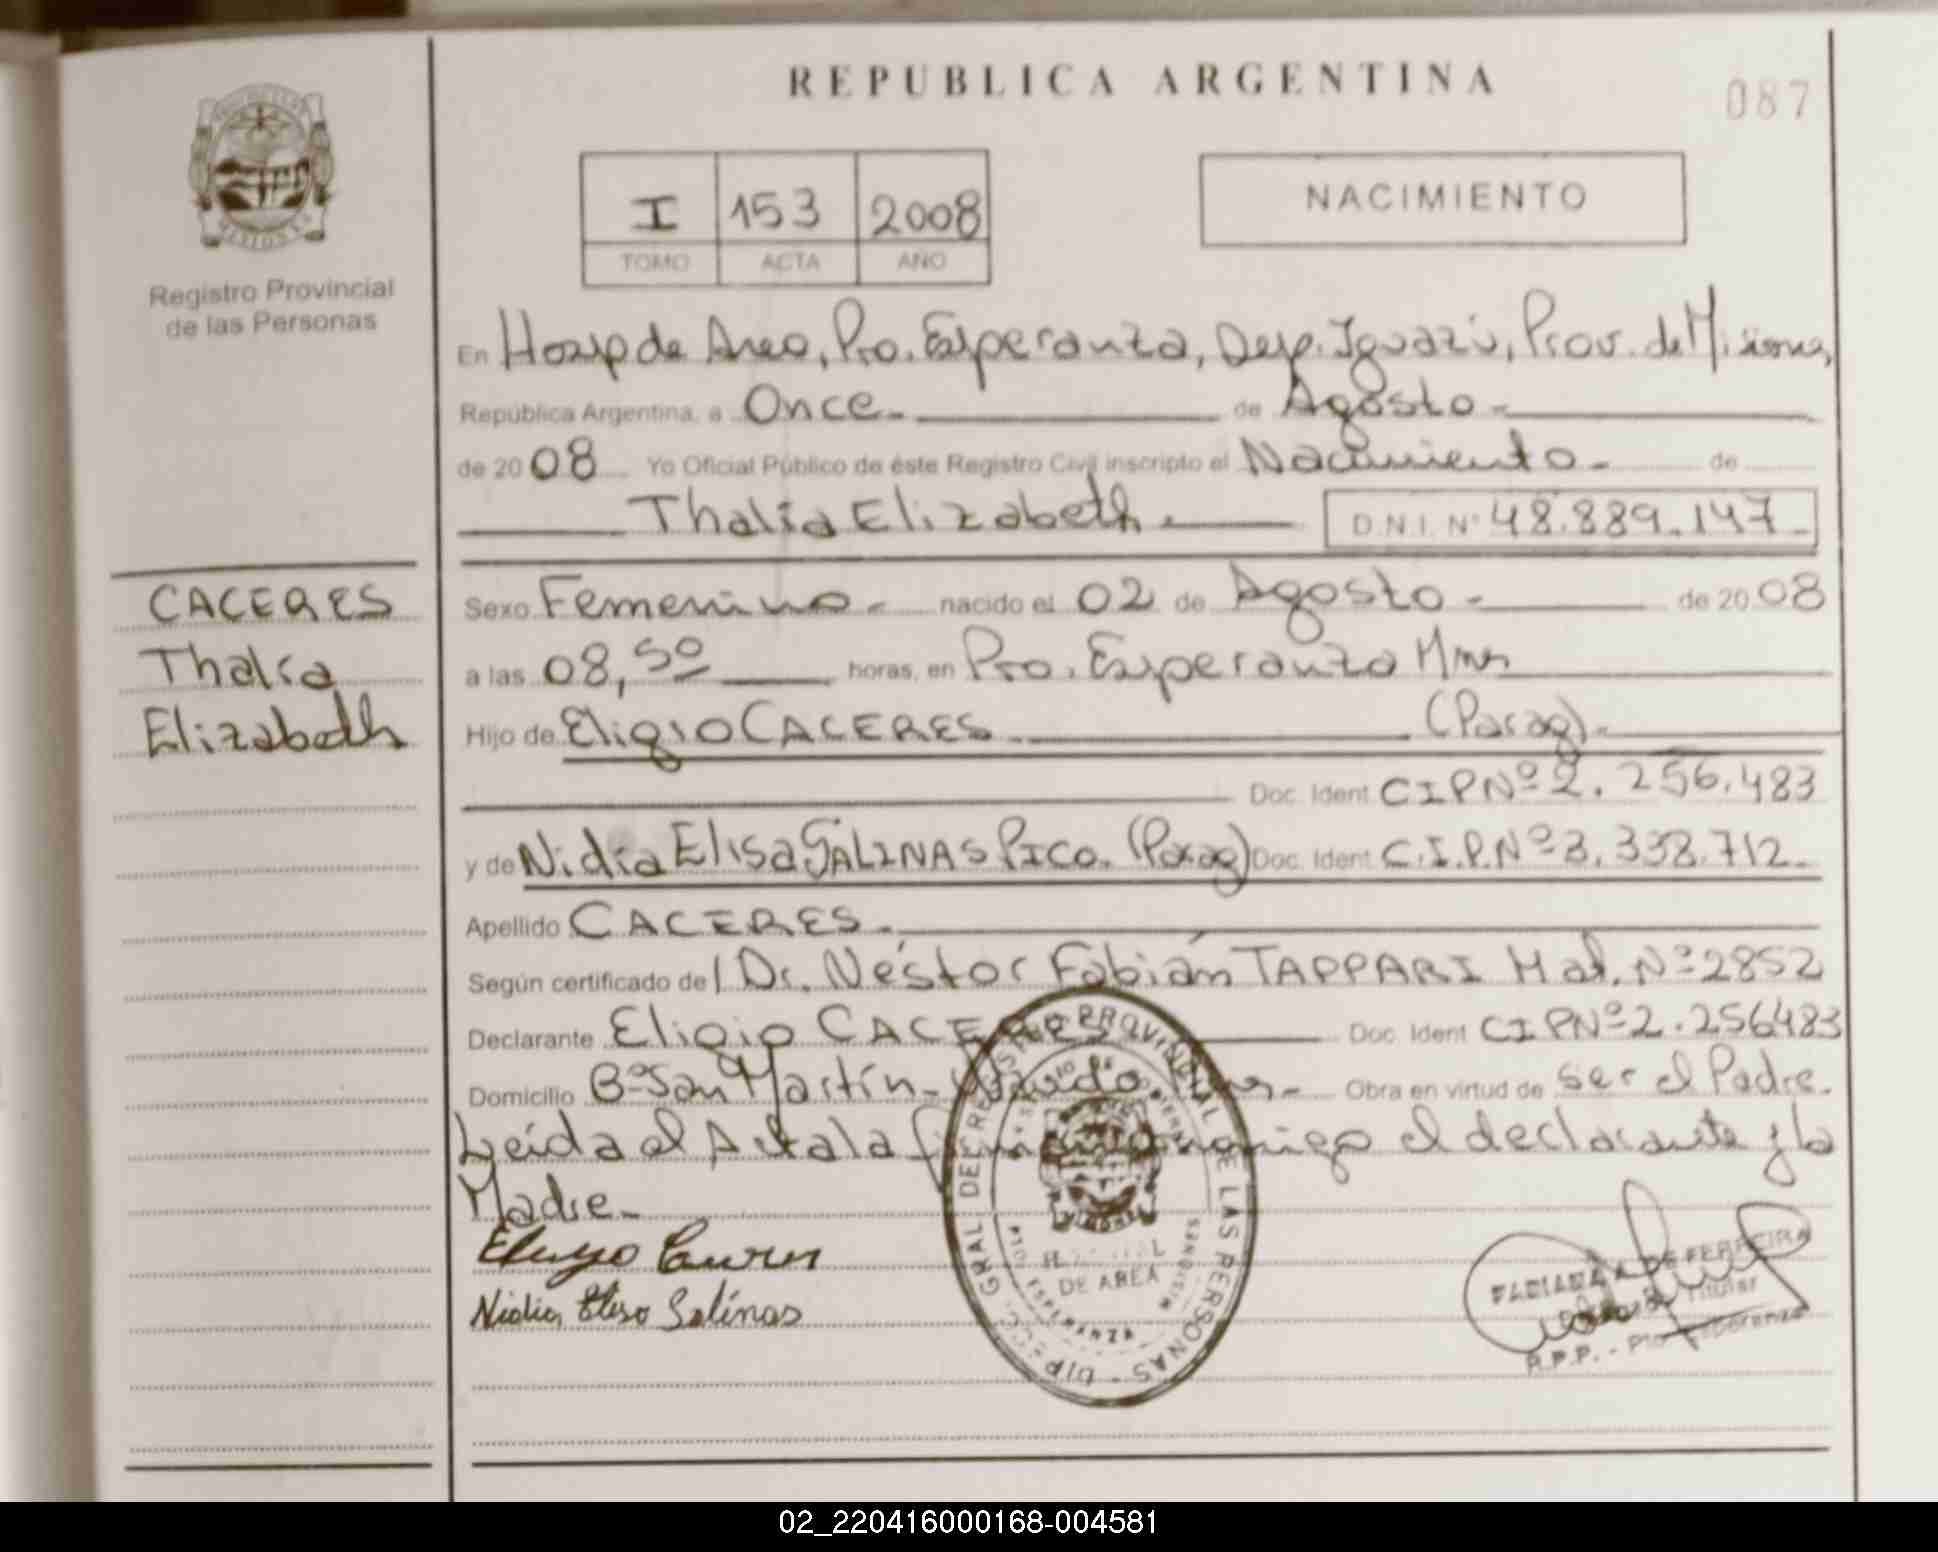 REPUBLICA ARGENTINA
087
I 153 2008
TOMO ACTA AÑO
NACIMIENTO
MISIONES
Registro Provincial
de las Personas
En Hosp de Area, Pto. Esperanza, Dep. Iguazú, Prov. de Misiones,
República Argentina, a Once de Agosto
de 2008 Yo Oficial Público de éste Registro Civil inscripto el Nacimiento de
Thalía Elizabeth D.N.I. Nº 48.889.147
CACERES
Thalía
Elizabeth
Sexo Femenino nacido el 02 de Agosto de 2008
a las 08,50 horas, en Pto. Esperanza Mnes
Hijo de Eligio CACERES (Parag)
Doc. Ident CIPNº 2.256.483
y de Nidia Elisa SALINAS PICO. (Parag) Doc. Ident C.I.P.Nº 3.338.712
Apellido CACERES
Según certificado del Dr. Néstor Fabián TAPPARI Mat. Nº 2852
Declarante Eligio CACERES Doc. Ident CIPNº 2.256483
Domicilio Bº San Martín Obra en virtud de ser el Padre.
Leída el Acta la firman conmigo el declarante y la
Madre
Nidia Elisa Salinas
DE AREA
ESPERANZA
MISIONES
DE FERREIRA
Titular
R.P.P. - Pto Esperanza
02_220416000168-004581